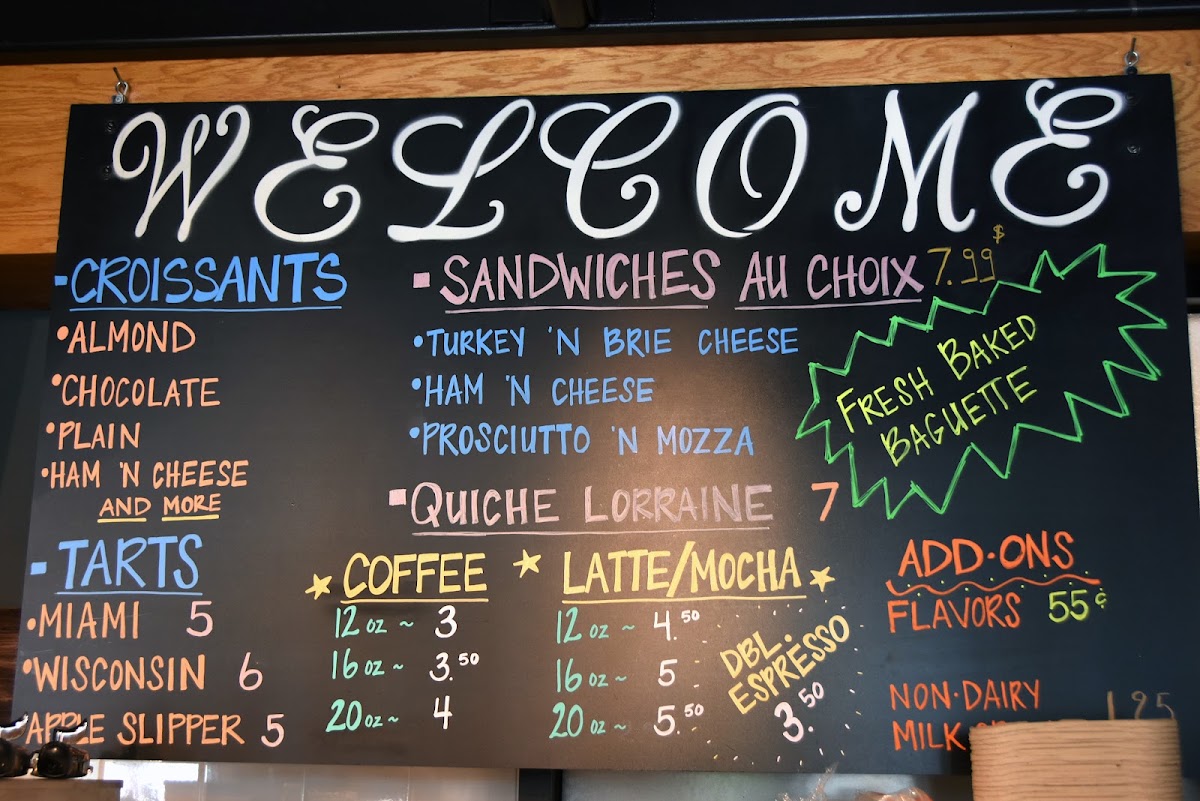 WELCOME
- CROISSANTS
• ALMOND
• CHOCOLATE
• PLAIN
• HAM 'N CHEESE
AND MORE
- TARTS
• MIAMI 5
• WISCONSIN 6
• APPLE SLIPPER 5
▪ SANDWICHES AU CHOIX 7.99$
• TURKEY 'N BRIE CHEESE
• HAM 'N CHEESE
• PROSCIUTTO 'N MOZZA
FRESH BAKED
BAGUETTE
▪ QUICHE LORRAINE 7
★ COFFEE ★
12 oz ~ 3
16 oz ~ 3.50
20 oz ~ 4
LATTE/MOCHA ★
12 oz ~ 4.50
16 oz ~ 5
20 oz ~ 5.50
DBL.
ESPRESSO
3.50
ADD•ONS
FLAVORS 55¢
NON•DAIRY
MILK